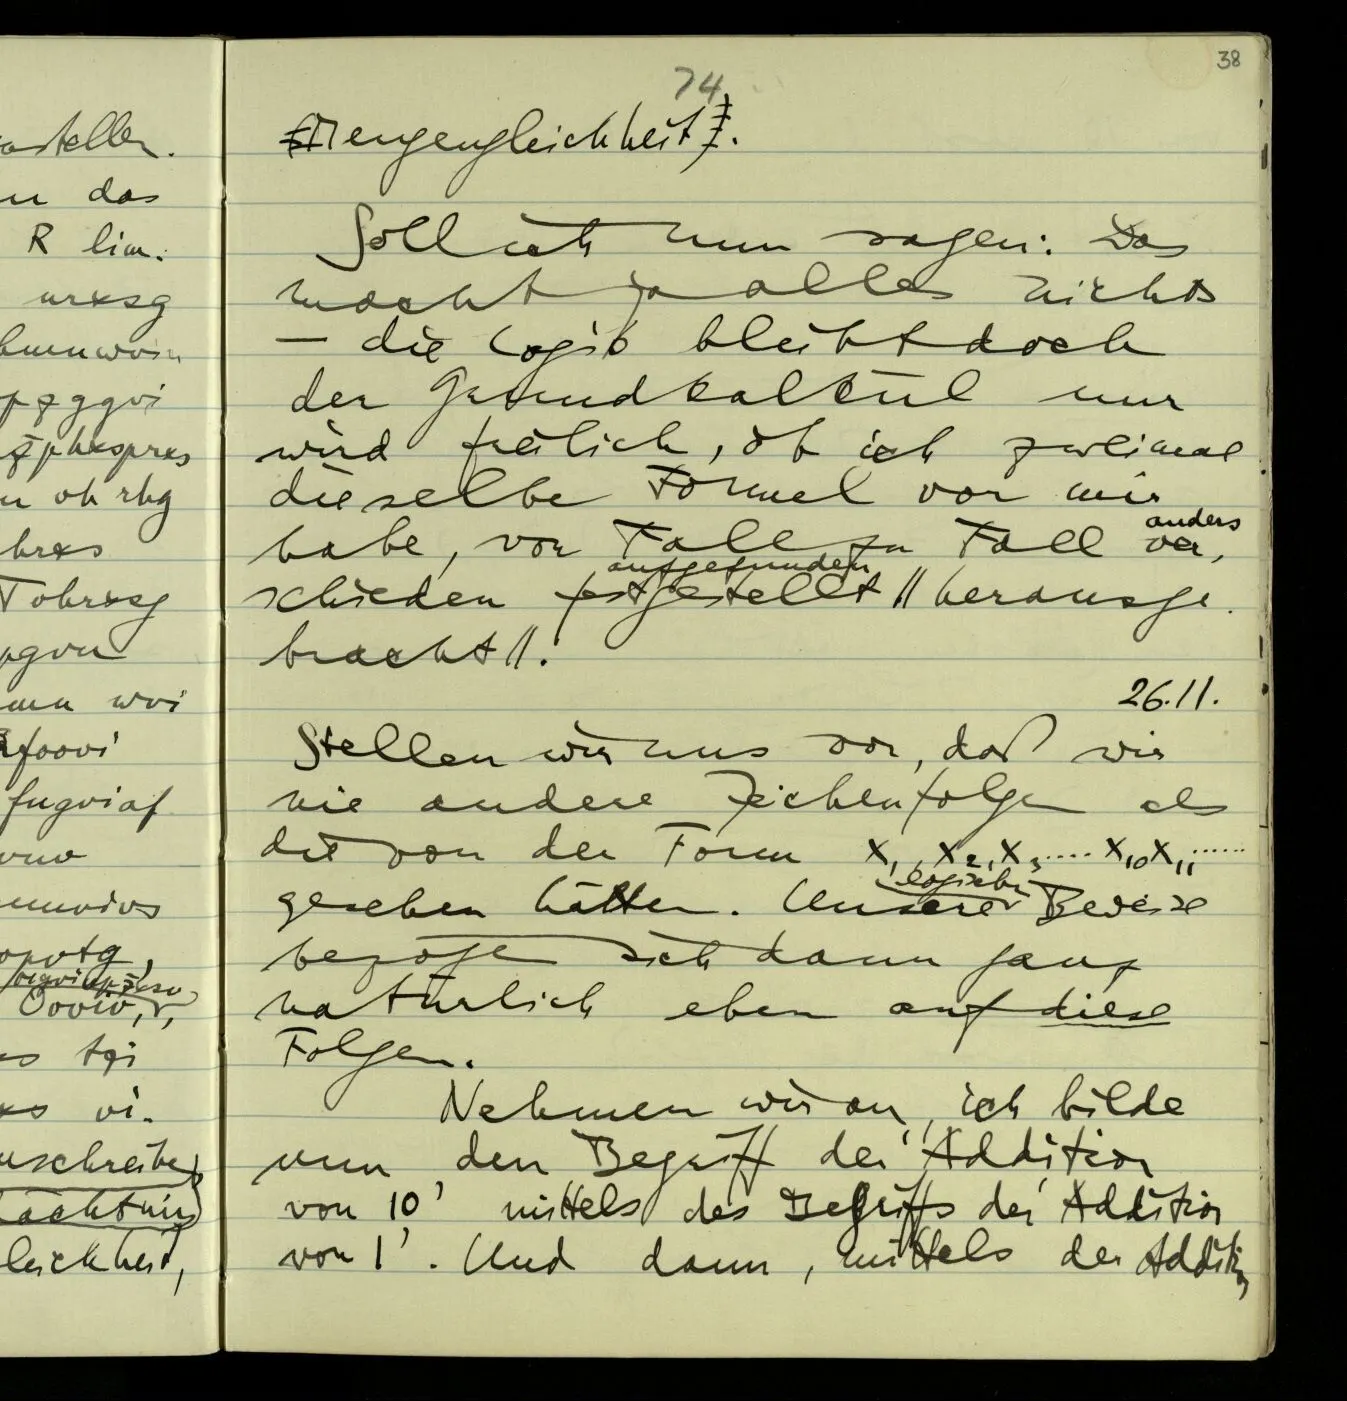 astellen.
n das
R lim.
urxsg
ppggvi
n oh rhg
hrxs
Tohrxsg
pgvn
mn wvi
rfoovi
fugviaf
vnv
opvtg,
Oovio,r,
es tgi
xs vi.
nschreibe
dächtnis
leichheit,
38
74
(Mengengleichheit).
Soll ich nun sagen: Das
macht ja alles nichts
– die Logik bleibt doch
der Grundkalkül nur
wird freilich, ob ich zweimal
dieselbe Formel vor mir
anders
habe, von Fall zu Fall ver-
aufgefunden
schieden festgestellt // herausge-
bracht //.
26.11.
Stellen wir uns vor, daß wir
nie andere Zeichenfolgen als
die von der Form x₁, x₂, x₃..... x₁₀ x₁₁......
logischen
gesehen hätten. Unsere Beweise
bezögen sich dann ganz
natürlich eben auf diese
Folgen.
Nehmen wir an, ich bilde
nun den Begriff der 'Addition
von 10' mittels des Begriffs der 'Addition
von 1'. Und dann, mittels der Addition